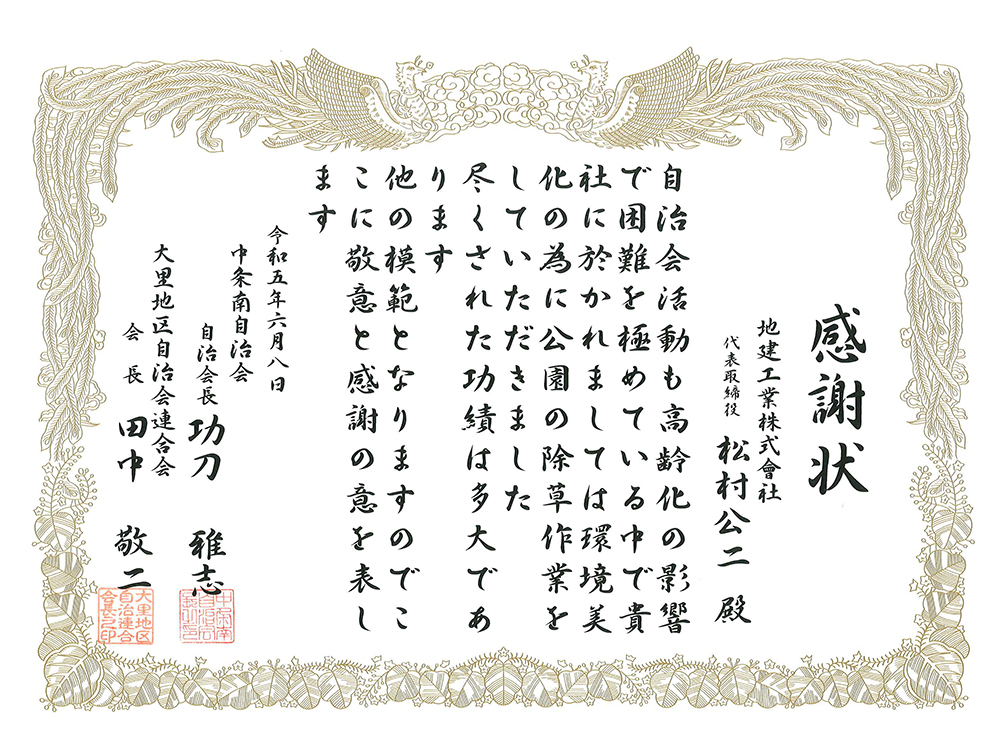 感謝状
地建工業株式會社
代表取締役 松村公二 殿
自治会活動も高齢化の影響
で困難を極めている中で貴
社に於かれましては環境美
化の為に公園の除草作業を
していただきました
尽くされた功績は多大であ
ります
他の模範となりますのでこ
こに敬意と感謝の意を表し
ます
令和五年六月八日
中条南自治会
自治会長 功刀 雅志
大里地区自治会連合会
会長 田中 敬二
大里地区
自治連合
会長之印